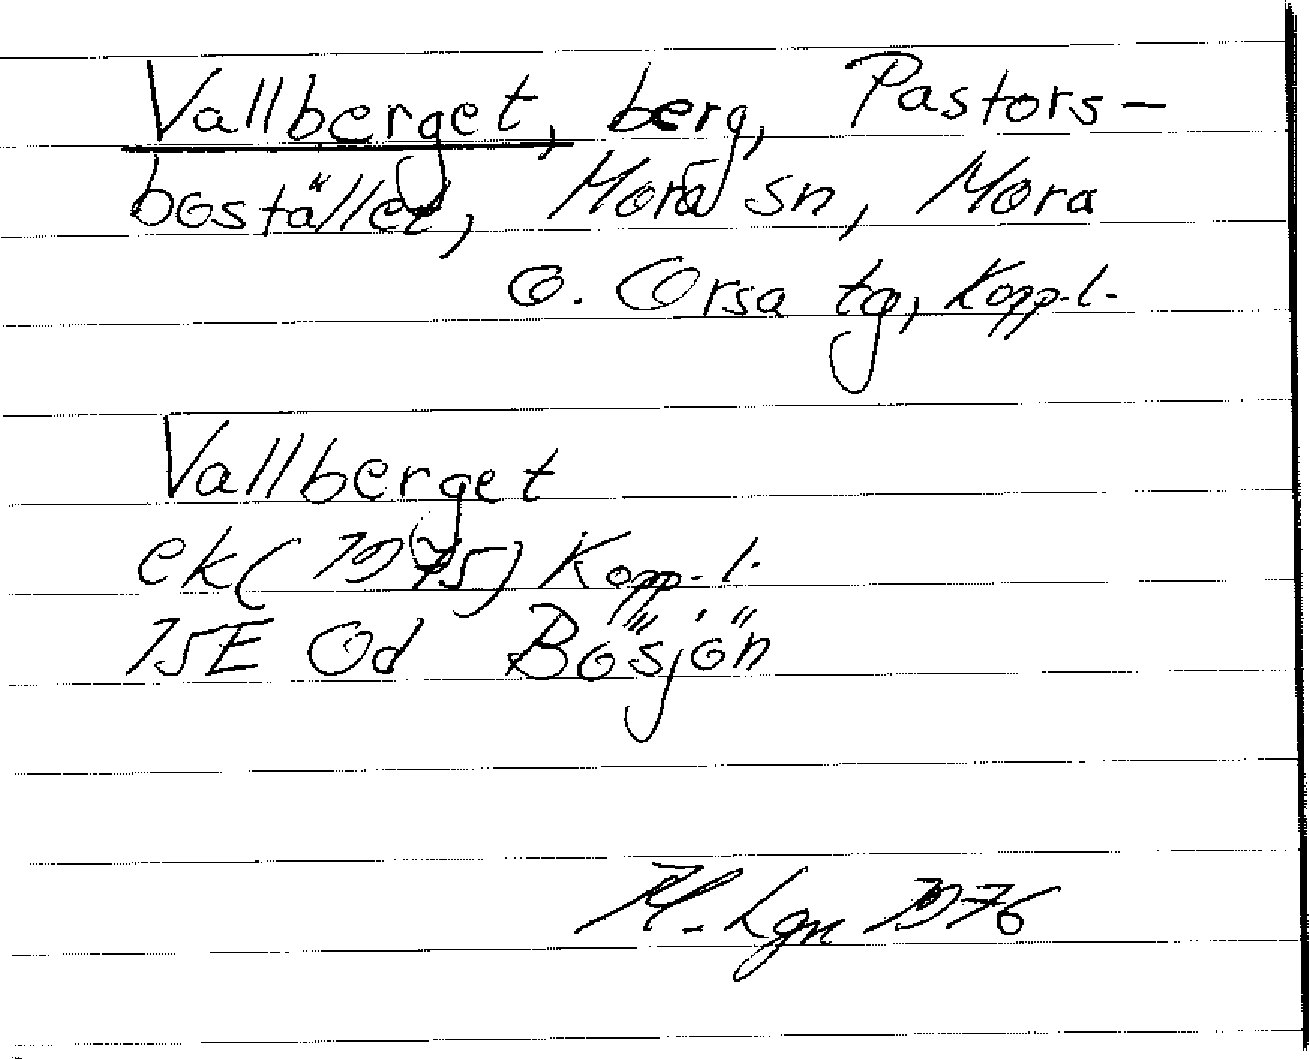 Vallberget, berg, Pastors-
bostället, Mora sn, Mora
o. Orsa tg, Kopp.l.
Vallberget
ek (1975) Kopp.l.
15E Od Bösjön
M. Lgn 1976